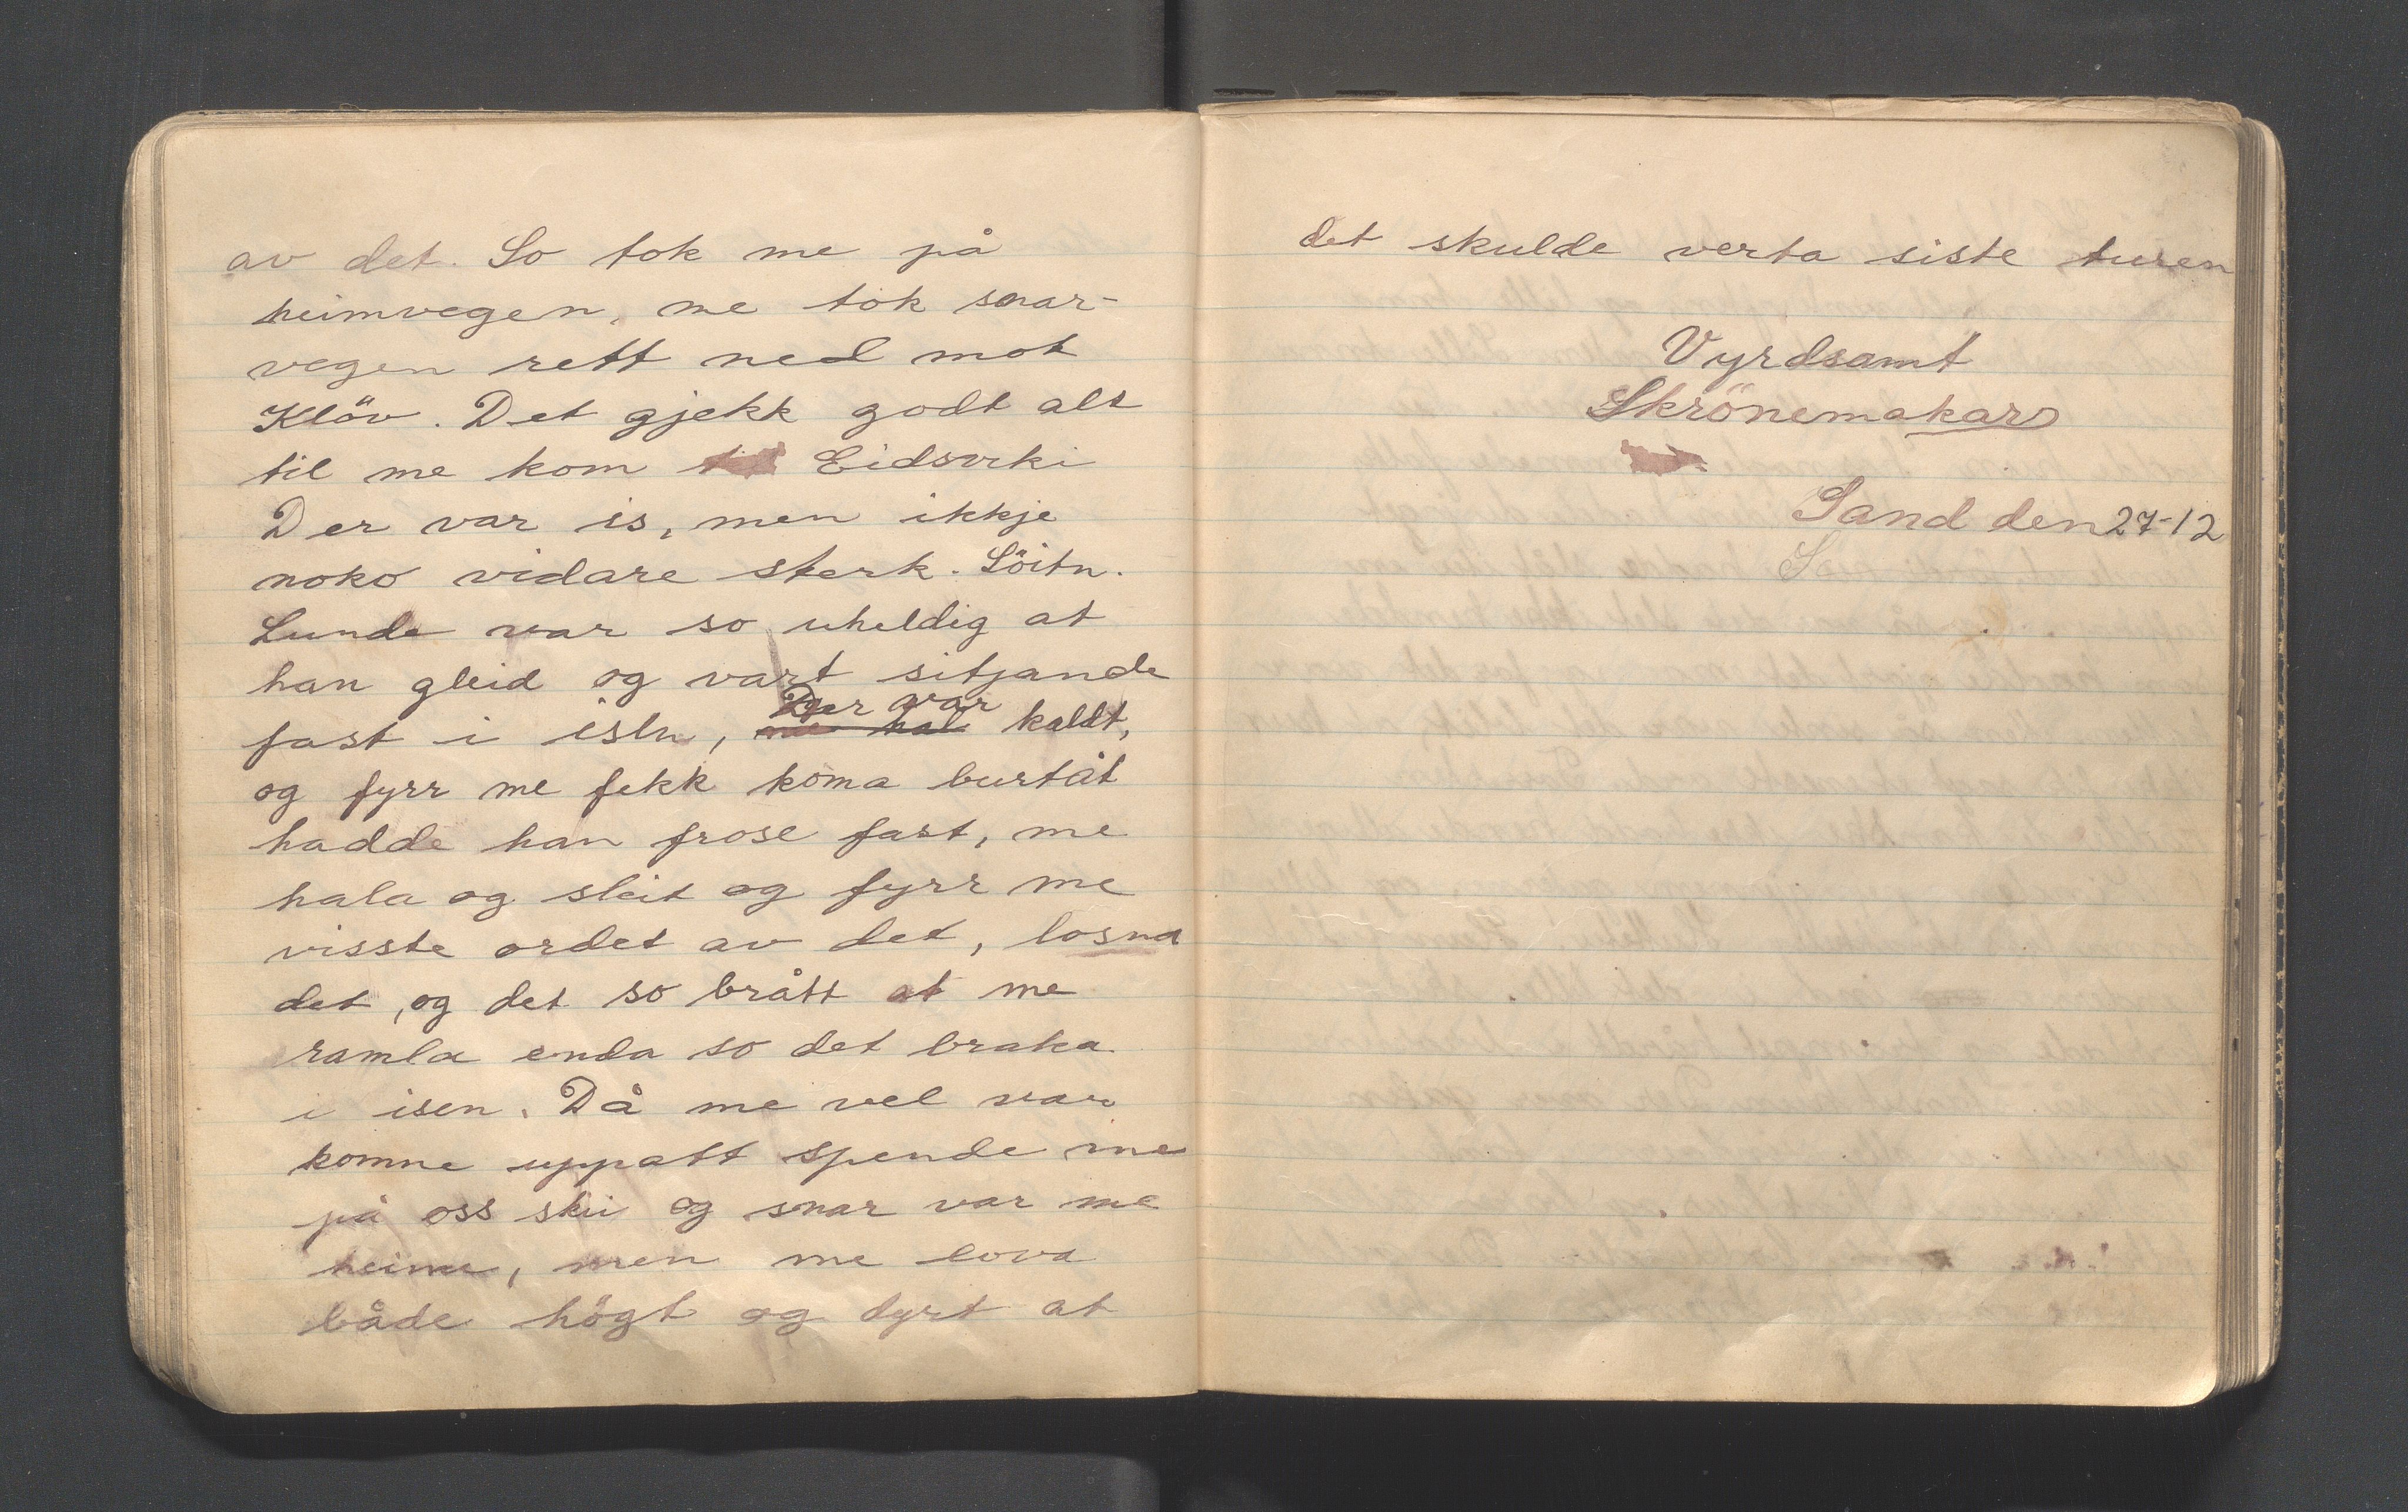 av det. So tok me på
heimvegen, me tok snar-
vegen rett ned mot
Klöv. Det gjekk godt alt
til me kom til Eidsvki
Der var is, men ikkje
noko vidare sterk. Löitn.
Lunde var so uheldig at
han gleid og vart sitjande
fast i isen, Der var kaldt,
og fyrr me fekk koma burtåt
hadde han frose fast, me
hala og sleit og fyrr me
visste ordet av det, losna
det, og det so brått at me
ramla enda so det braka
i isen. Då me vel var
komne uppatt spende me
på oss ski og snar var me
heime, men me lova
både högt og dyrt at
det skulde verta siste turen
Vyrdsamt
Skrönemakar
Sand den 27-12